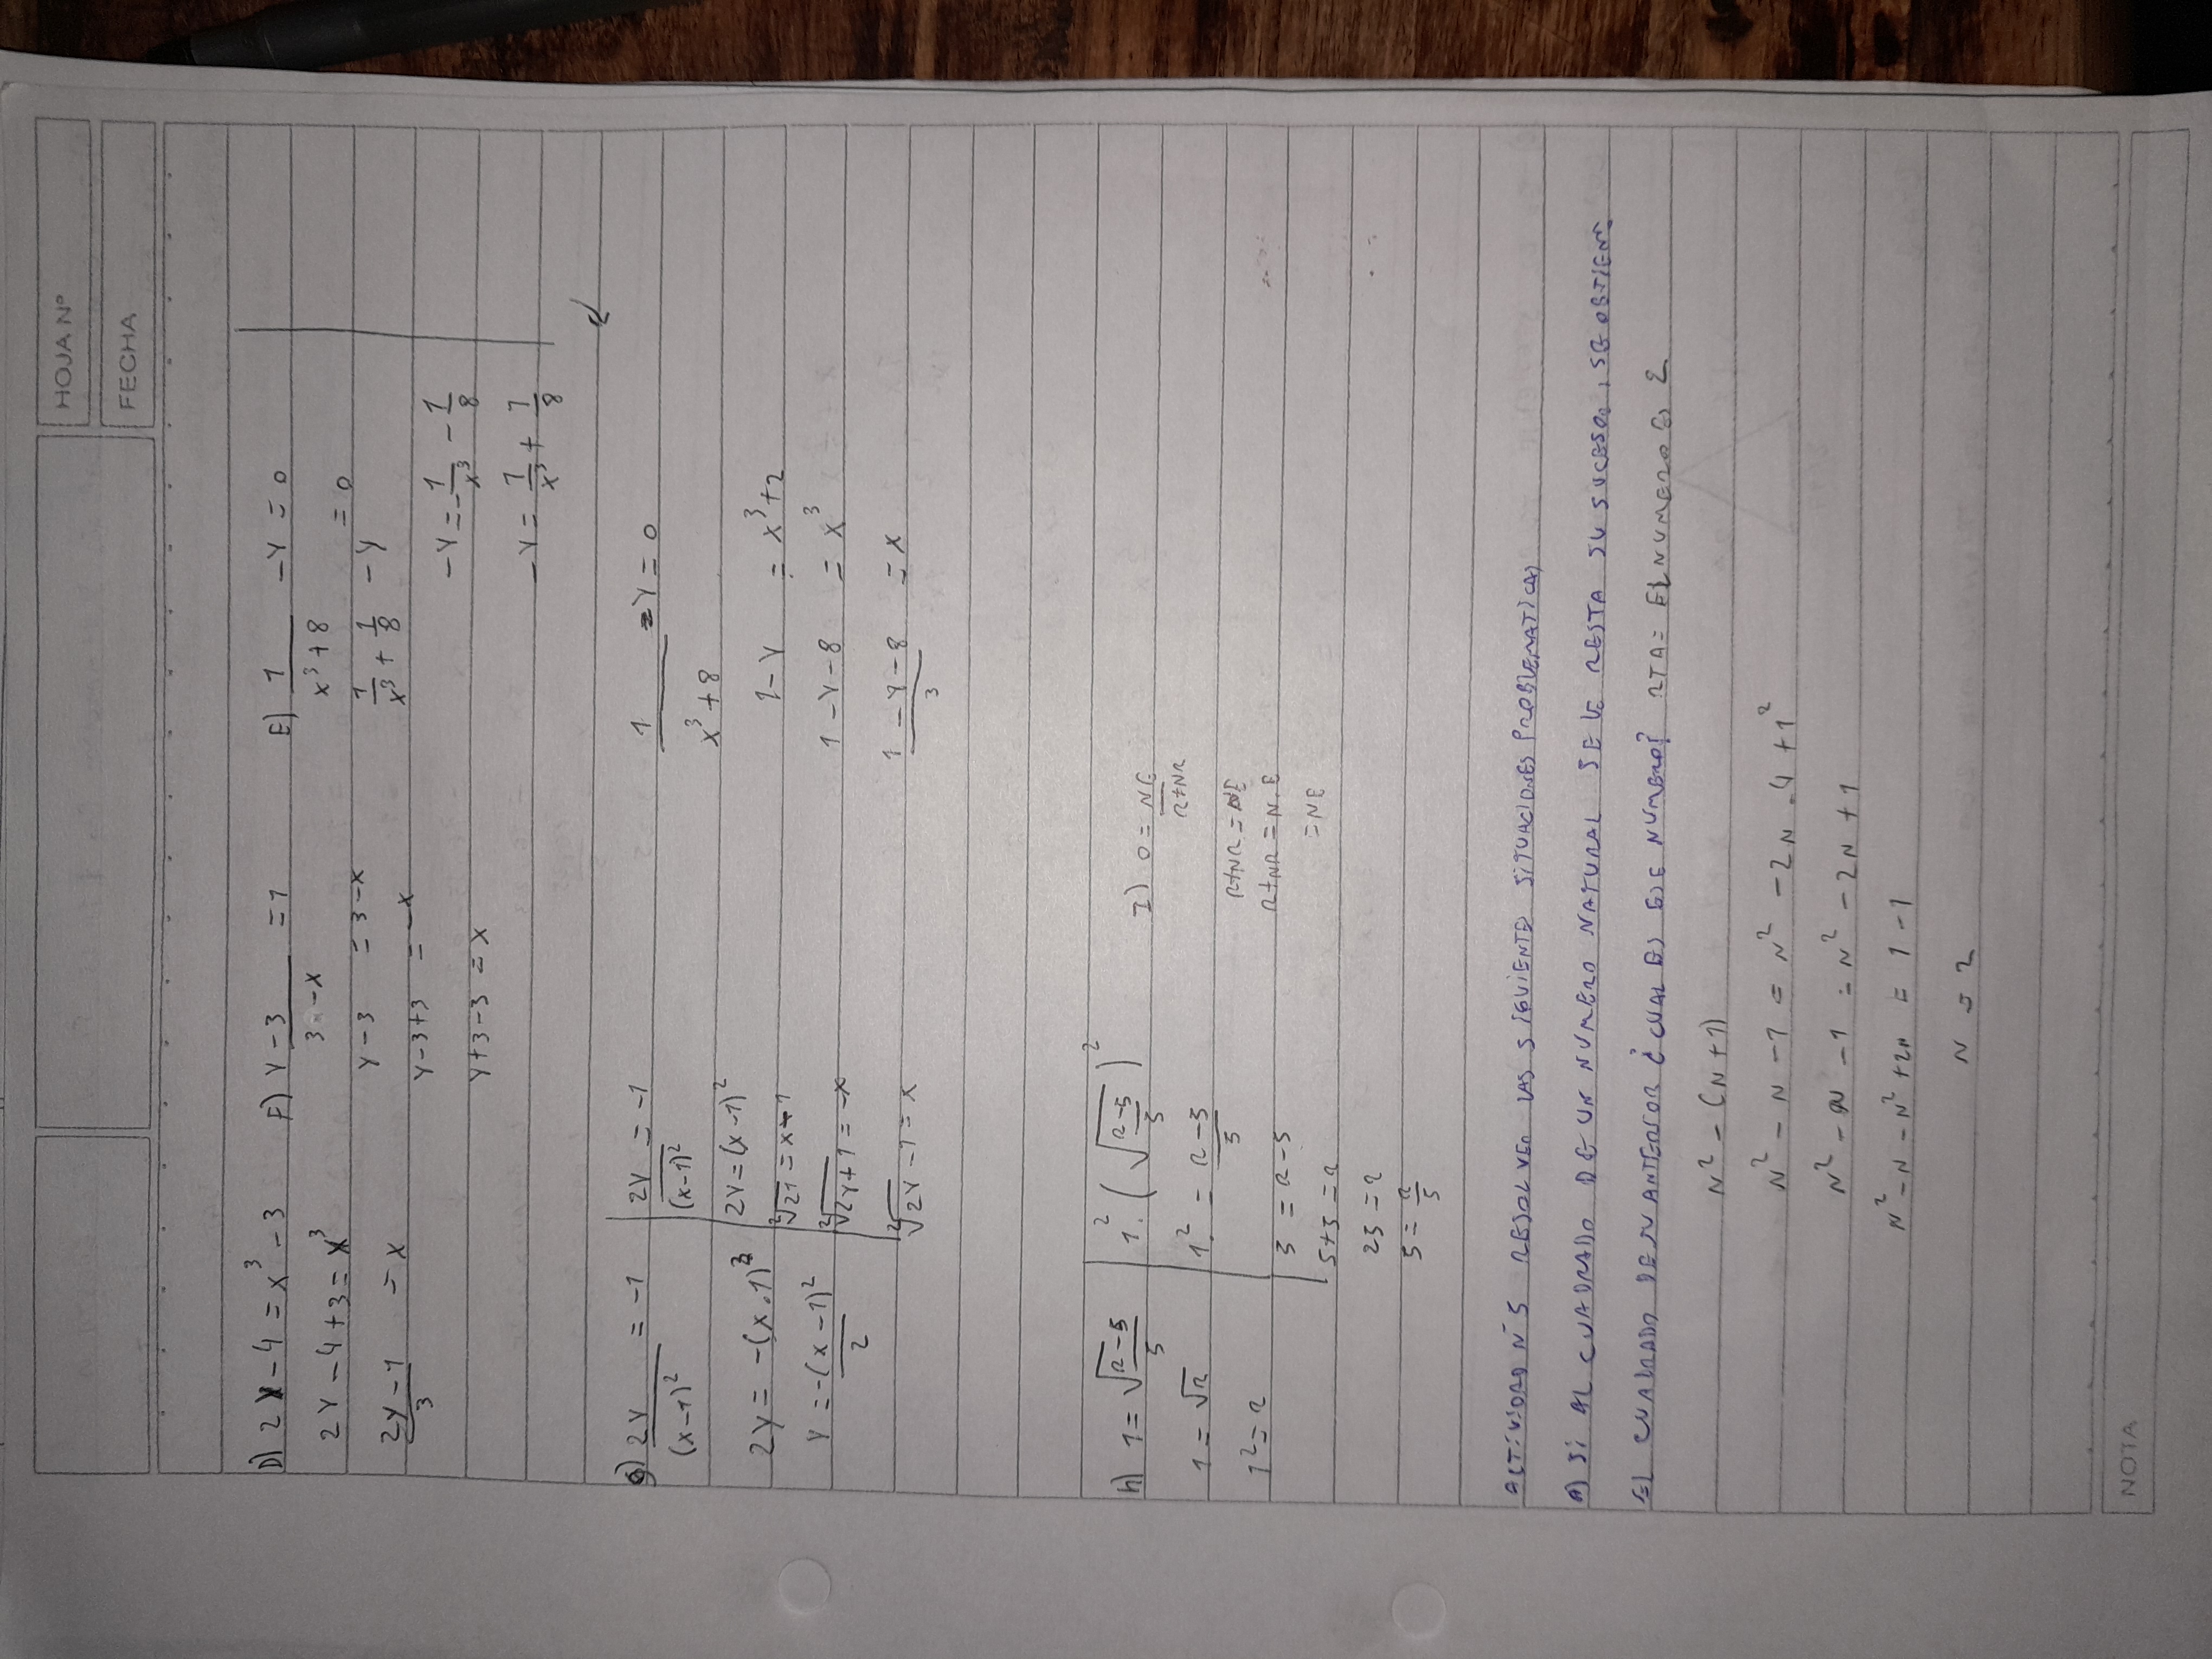 HOJA Nº
FECHA
D) 2y - 4 = x³ - 3
2y - 4 + 3 = x³
2y - 1 = x
3
F) y - 3 = 1
3 - x
y - 3 = 3 - x
y - 3 + 3 = -x
y + 3 - 3 = x
E) 1 - y = 0
x³ + 8
1/x³ + 1/8 - y = 0
-y = -1/x³ - 1/8
-y = 1/x³ + 1/8
G) 2y = -1
(x-1)²
2y = -(x-1)²
y = -(x-1)²
2
2y = -1
(x-1)²
2y = (x-1)²
²√21 = x+1
²√2y+1 = -x
²√2y-1 = x
1 = y = 0
x³ + 8
1 - y = x³ + 2
1 - y - 8 = x³
1 - y - 8 = x
3
h) 1 = √R-5
5
1 = √R
1² = R
1². (√R-5/5)²
1² = R-5
5
5 = R - 5
5+5 = R
25 = R
5 = R/5
I) 0 = NE
R+NR
R+NR = NE
R+NR = N.E
= NE
ACTIVIDAD N 5 RESOLVER LAS SIGUIENTE SITUACIONES PROBLEMATICAS
A) SI AL CUADRADO DE UN NUMERO NATURAL SE LE RESTA SU SUCESOR, SE OBTIENE
EL CUADRADO DE SU ANTERIOR ¿ CUAL ES ESE NUMERO? RTA= EL NUMERO ES 2
N² - (N+1)
N² - N - 1 = N² - 2N.1 + 1²
N² - N - 1 = N² - 2N + 1
N² - N - N² + 2N = 1 - 1
N = 2
NOTA